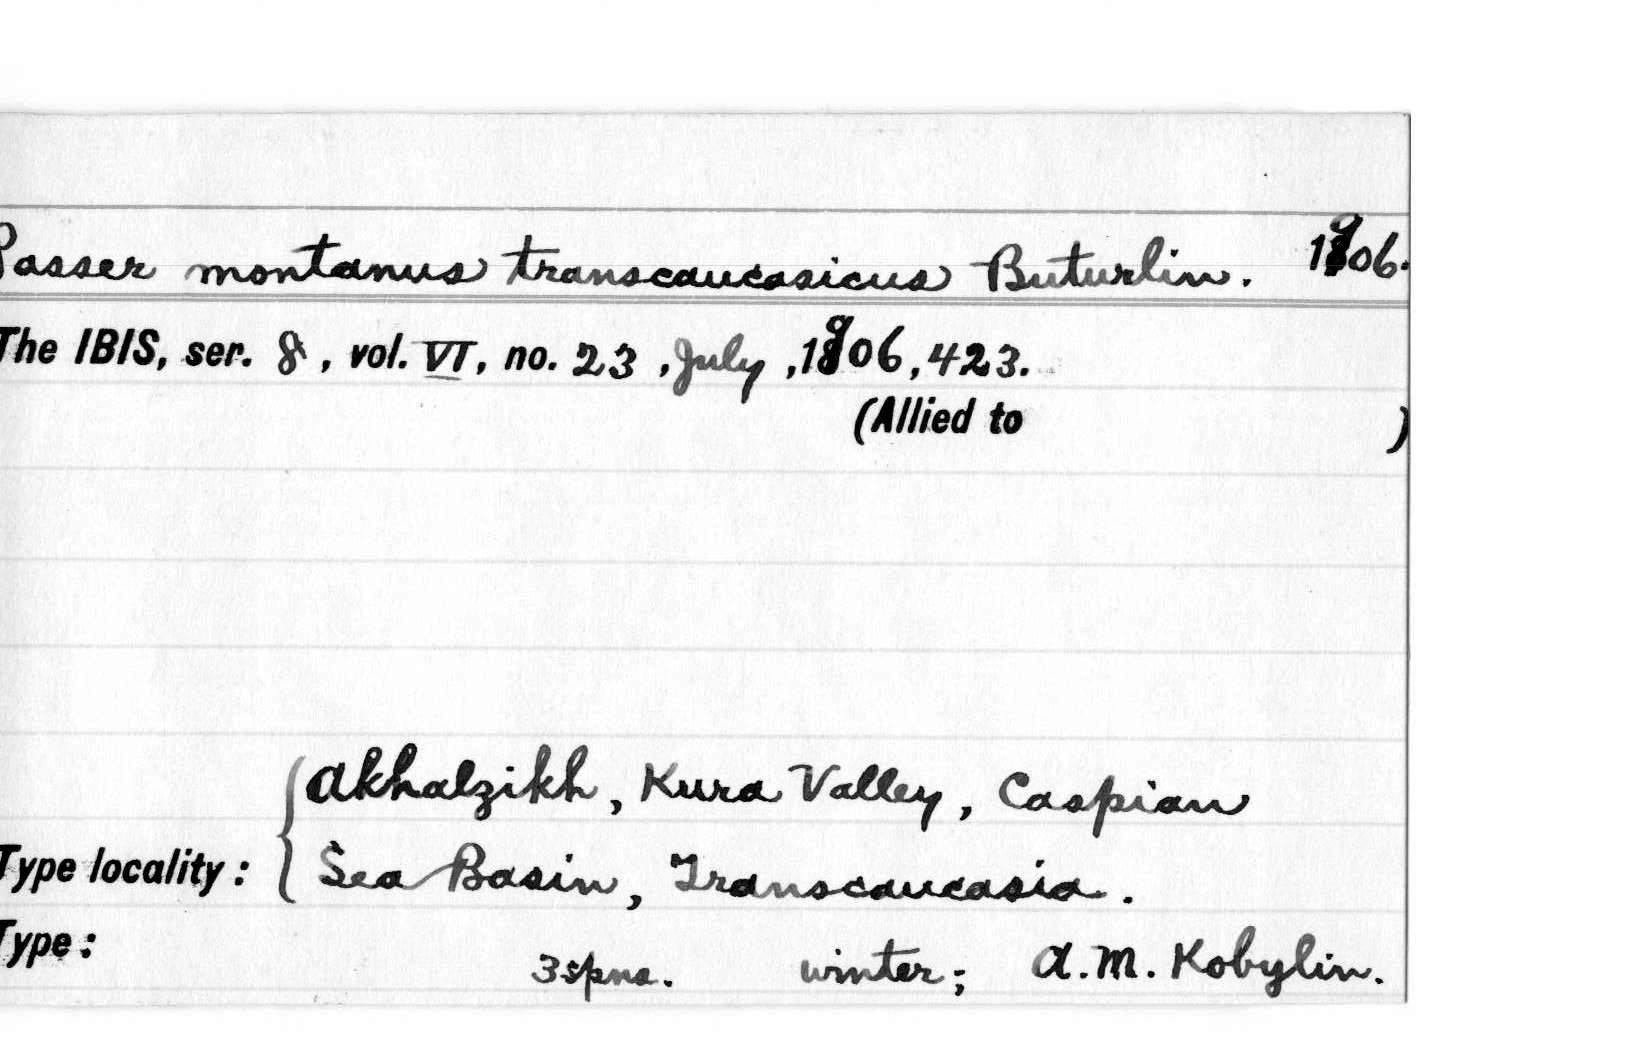 Passer montanus transcaucasicus Buturlin. 1906.
The IBIS, ser. 8, vol. VI, no. 23, July, 1906, 423.
(Allied to )
Akhalzikh, Kura Valley, Caspian
Type locality: Sea Basin, Transcaucasia.
Type:
3 spns. winter; A.M. Kobylin.